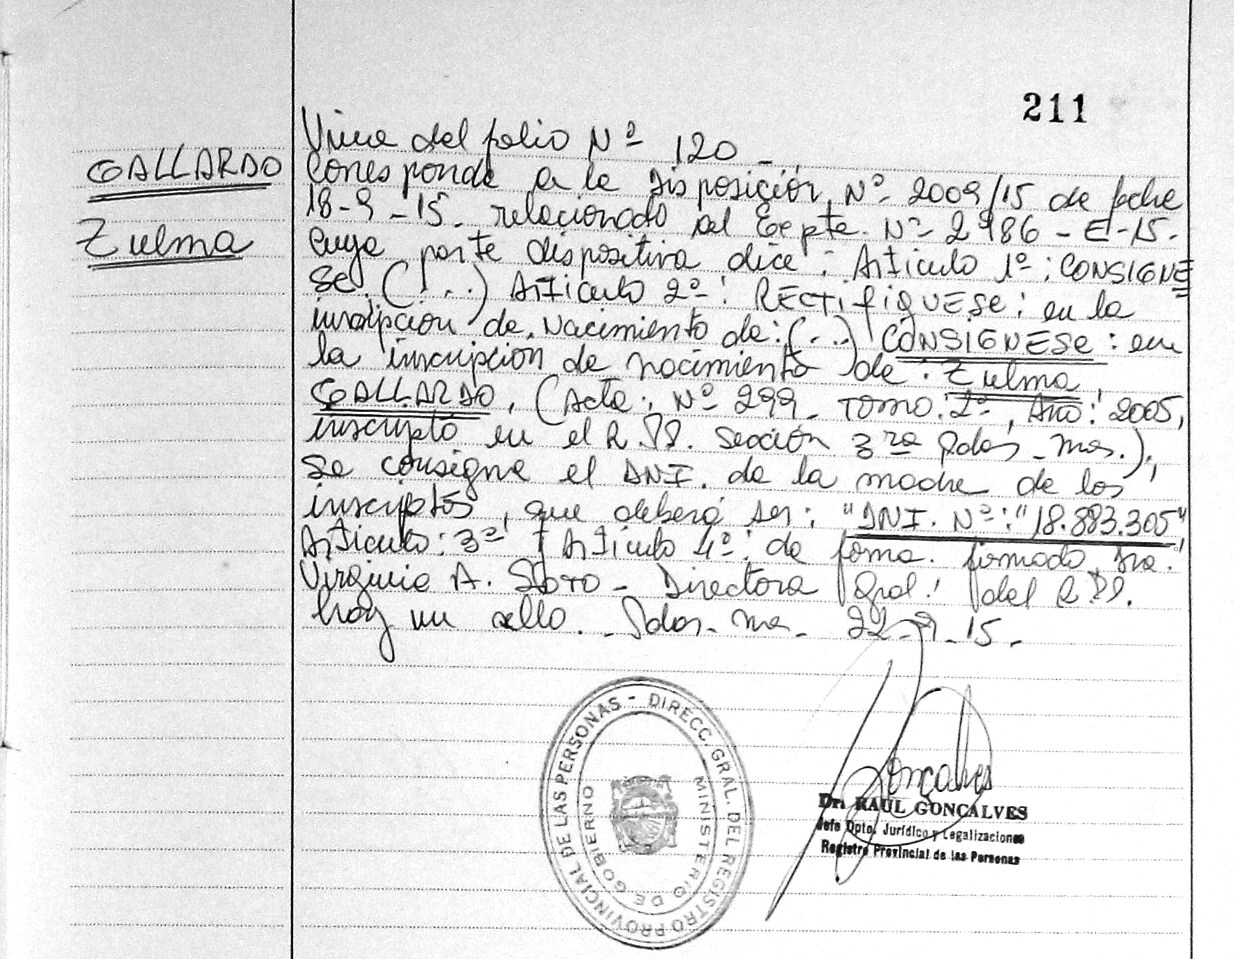 211
GALLARDO
Zulma
Viene del folio Nº 120 -
Corresponde a la Disposición Nº 2009/15 de fecha
18-9-15. relacionado al Expte. Nº 2986-E-15-
cuya parte dispositiva dice: Artículo 1º: CONSIGNE
SE (...) Artículo 2º: RECTIFIQUESE: en la
inscripción de Nacimiento de: (...) CONSIGNESE: en
la inscripción de nacimiento de: Zulma
GALLARDO, (Acta: Nº 299 - Tomo: 2º, Año: 2005,
inscripto en el R.PP. Sección 3ra Pdas - Mnes.),
se consigne el DNI. de la madre de los
inscriptos, que deberá ser: "DNI. Nº: "18.883.305"
Artículo: 3º y Artículo 4º: de forma. firmado, Sra.
Virginia A. - Directora Gral. del R.PP.
hay un sello. - Pdas - Mnes - 22-9-15-
DIRECC. GRAL. DEL REGISTRO PROVINCIAL DE LAS PERSONAS -
MINISTERIO DE GOBIERNO
Goncalves
Dr. RAUL GONCALVES
Jefe Dpto. Jurídico y Legalizaciones
Registro Provincial de las Personas